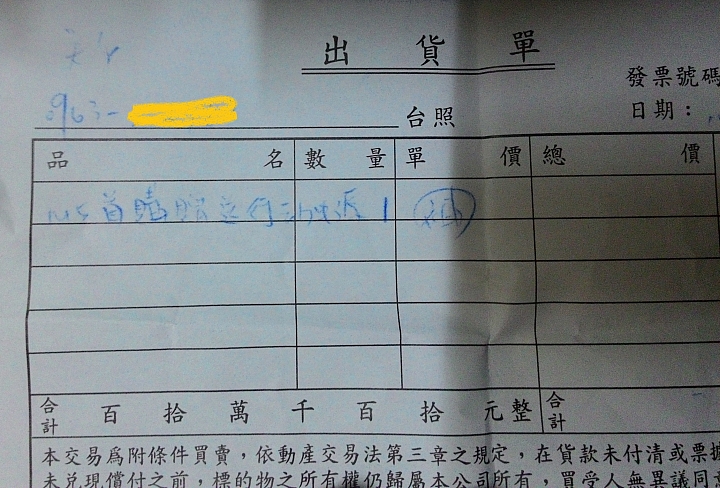 出貨單
發票號碼
0963-
台照
日期：
品名 數量 單價 總價
首購贈 行動電源 1 補
合計 百 拾 萬 千 百 拾 元整 合計
本交易為附條件買賣，依動產交易法第三章之規定，在貨款未付清或票據
未兌現償付之前，標的物之所有權仍歸屬本公司所有，買受人無異議同意